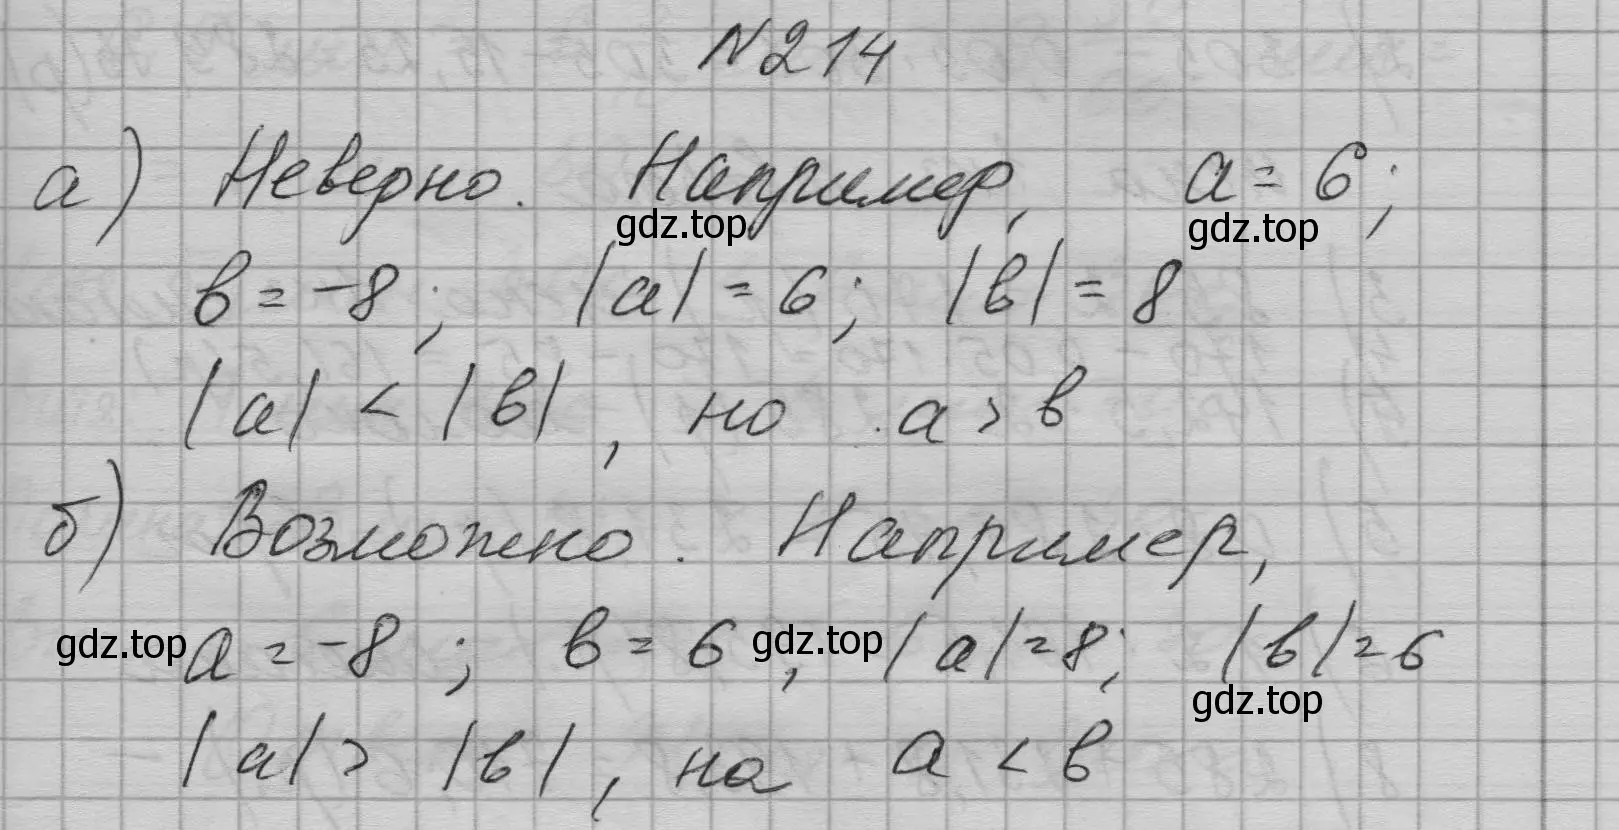 №214
а) Неверно. Например, a = 6;
gdz.top gdz.top
b = -8; |a| = 6; |b| = 8
|a| < |b|, но a > b
б) Возможно. Например,
gdz.top a = -8; b = 6, gdz.top |a| = 8; |b| = 6
gdz.top
|a| > |b|, на a < b